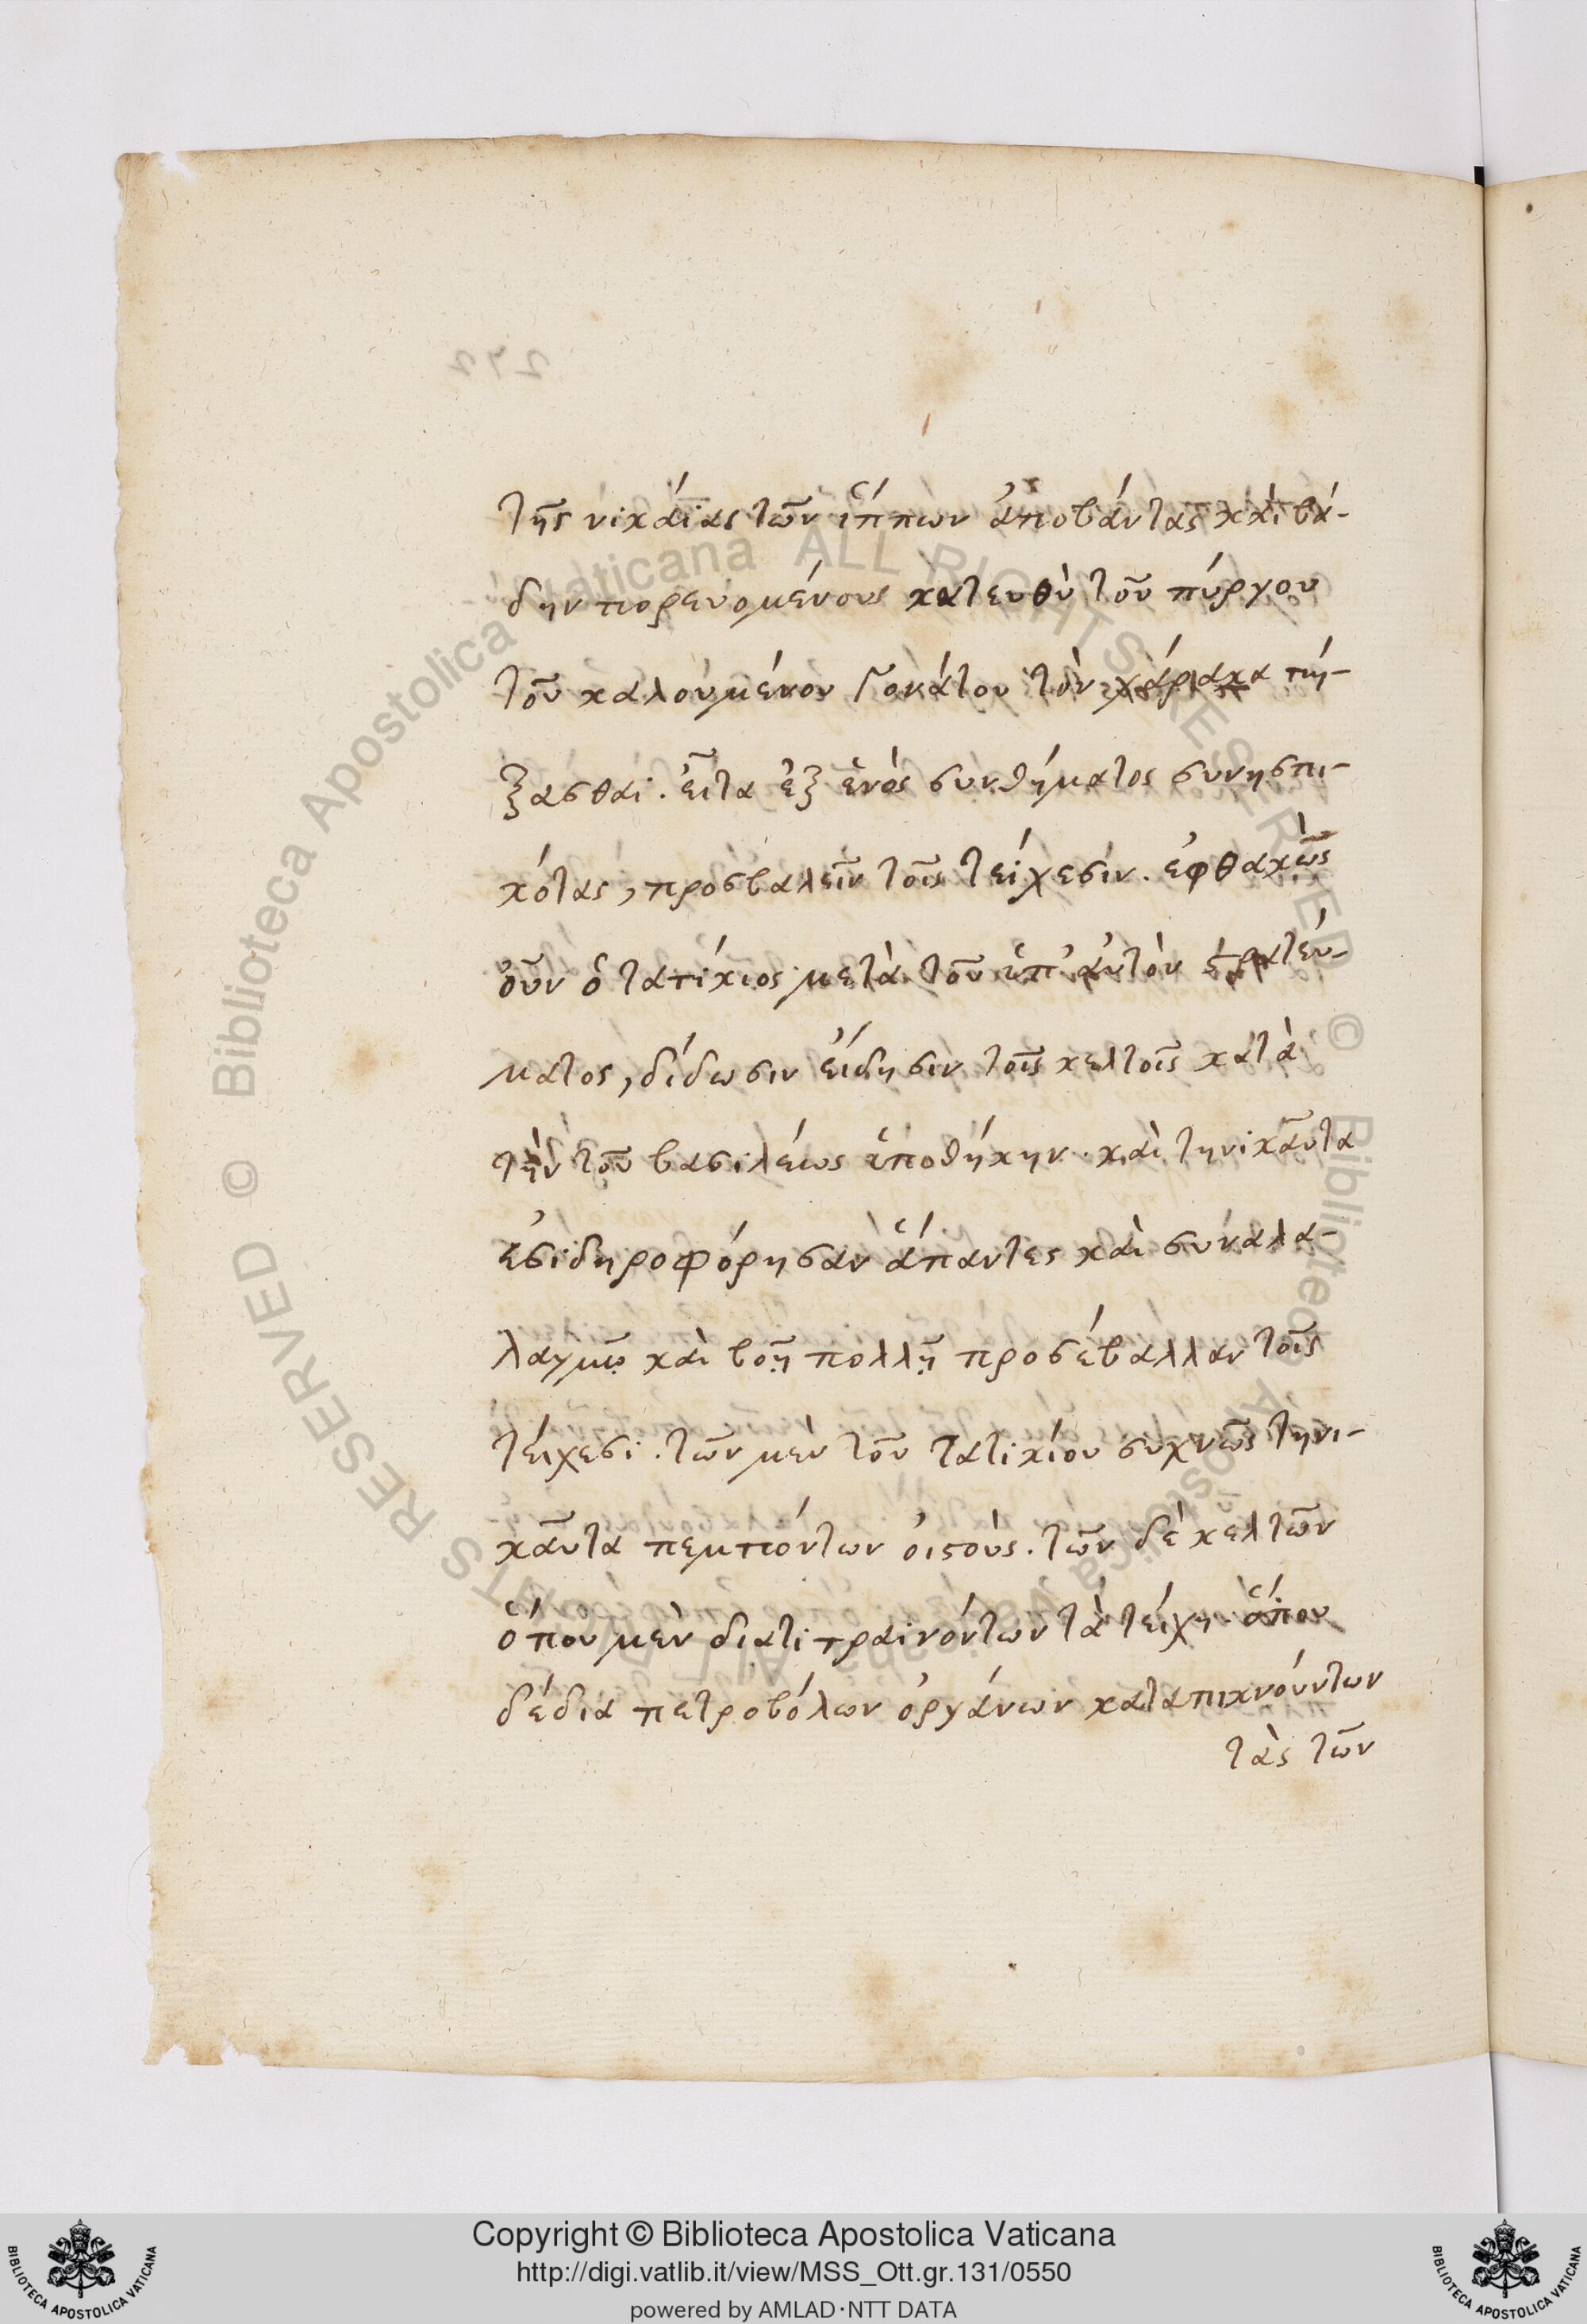 τῆς νικαίας τῶν ἵππων ἀποβάντας καὶ βά-
δην πορευομένους κατευθὺ τοῦ πύργου
τοῦ καλουμένου Γονάτου τὸν χάρακα πή-
ξασθαι. εἶτα ἐξ ἑνὸς συνθήματος συνησπι-
κότας, προσβαλεῖν τοῖς τείχεσιν. ἐφθακὼς
οὖν ὁ τατίκιος μετὰ τοῦ ὑπ' αὐτὸν στρατεύ-
ματος, δίδωσιν εἴδησιν τοῖς κελτοῖς κατὰ
τὴν τοῦ βασιλέως ὑποθήκην. καὶ τηνικαῦτα
ἐσιδηροφόρησαν ἅπαντες καὶ συναλα-
λαγμῷ καὶ βοῇ πολλῇ προσέβαλλαν τοῖς
τείχεσι. τῶν μὲν τοῦ Τατικίου συχνῶς τηνι-
καῦτα πεμπόντων ὀιστούς. τῶν δὲ κελτῶν
ὅπου μὲν διατιτραινόντων τὰ τείχη. ἅπου
δέδια πετροβόλων ὀργάνων καταπικνούντων
τὰς τῶν
272
Copyright © Biblioteca Apostolica Vaticana
http://digi.vatlib.it/view/MSS_Ott.gr.131/0550
powered by AMLAD·NTT DATA
BIBLIOTECA APOSTOLICA VATICANA
BIBLIOTECA APOSTOLICA VATICANA
© Biblioteca Apostolica Vaticana ALL RIGHTS RESERVED
© Biblioteca Apostolica Vaticana ALL RIGHTS RESERVED